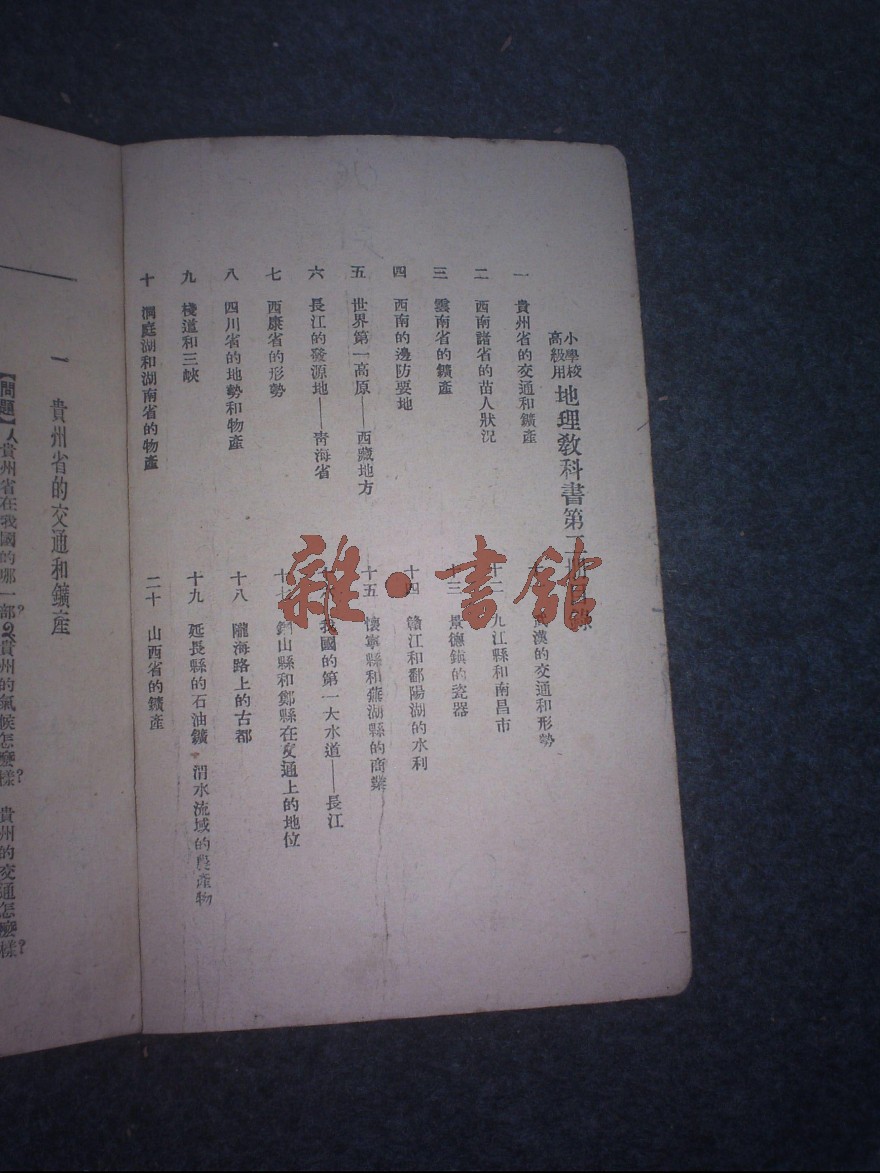 小學校
高級用
地理教科書第二冊目錄
一 貴州省的交通和鑛產
二 西南諸省的苗人狀況
三 雲南省的鑛產
四 西南的邊防要地
五 世界第一高原——西藏地方
六 長江的發源地——青海省
七 西康省的形勢
八 四川省的地勢和物產
九 棧道和三峽
十 洞庭湖和湖南省的物產
漢的交通和形勢
十二 九江縣和南昌市
十三 景德鎮的瓷器
十四 贛江和鄱陽湖的水利
十五 懷寧縣和蕪湖縣的商業
我國的第一大水道——長江
十七 銅山縣和鄭縣在交通上的地位
十八 隴海路上的古都
十九 延長縣的石油鑛 渭水流域的農產物
二十 山西省的鑛產
雜·書館
一 貴州省的交通和鑛產
【問題】貴州省在我國的哪一部？貴州的氣候怎麼樣？ 貴州的交通怎麼樣？